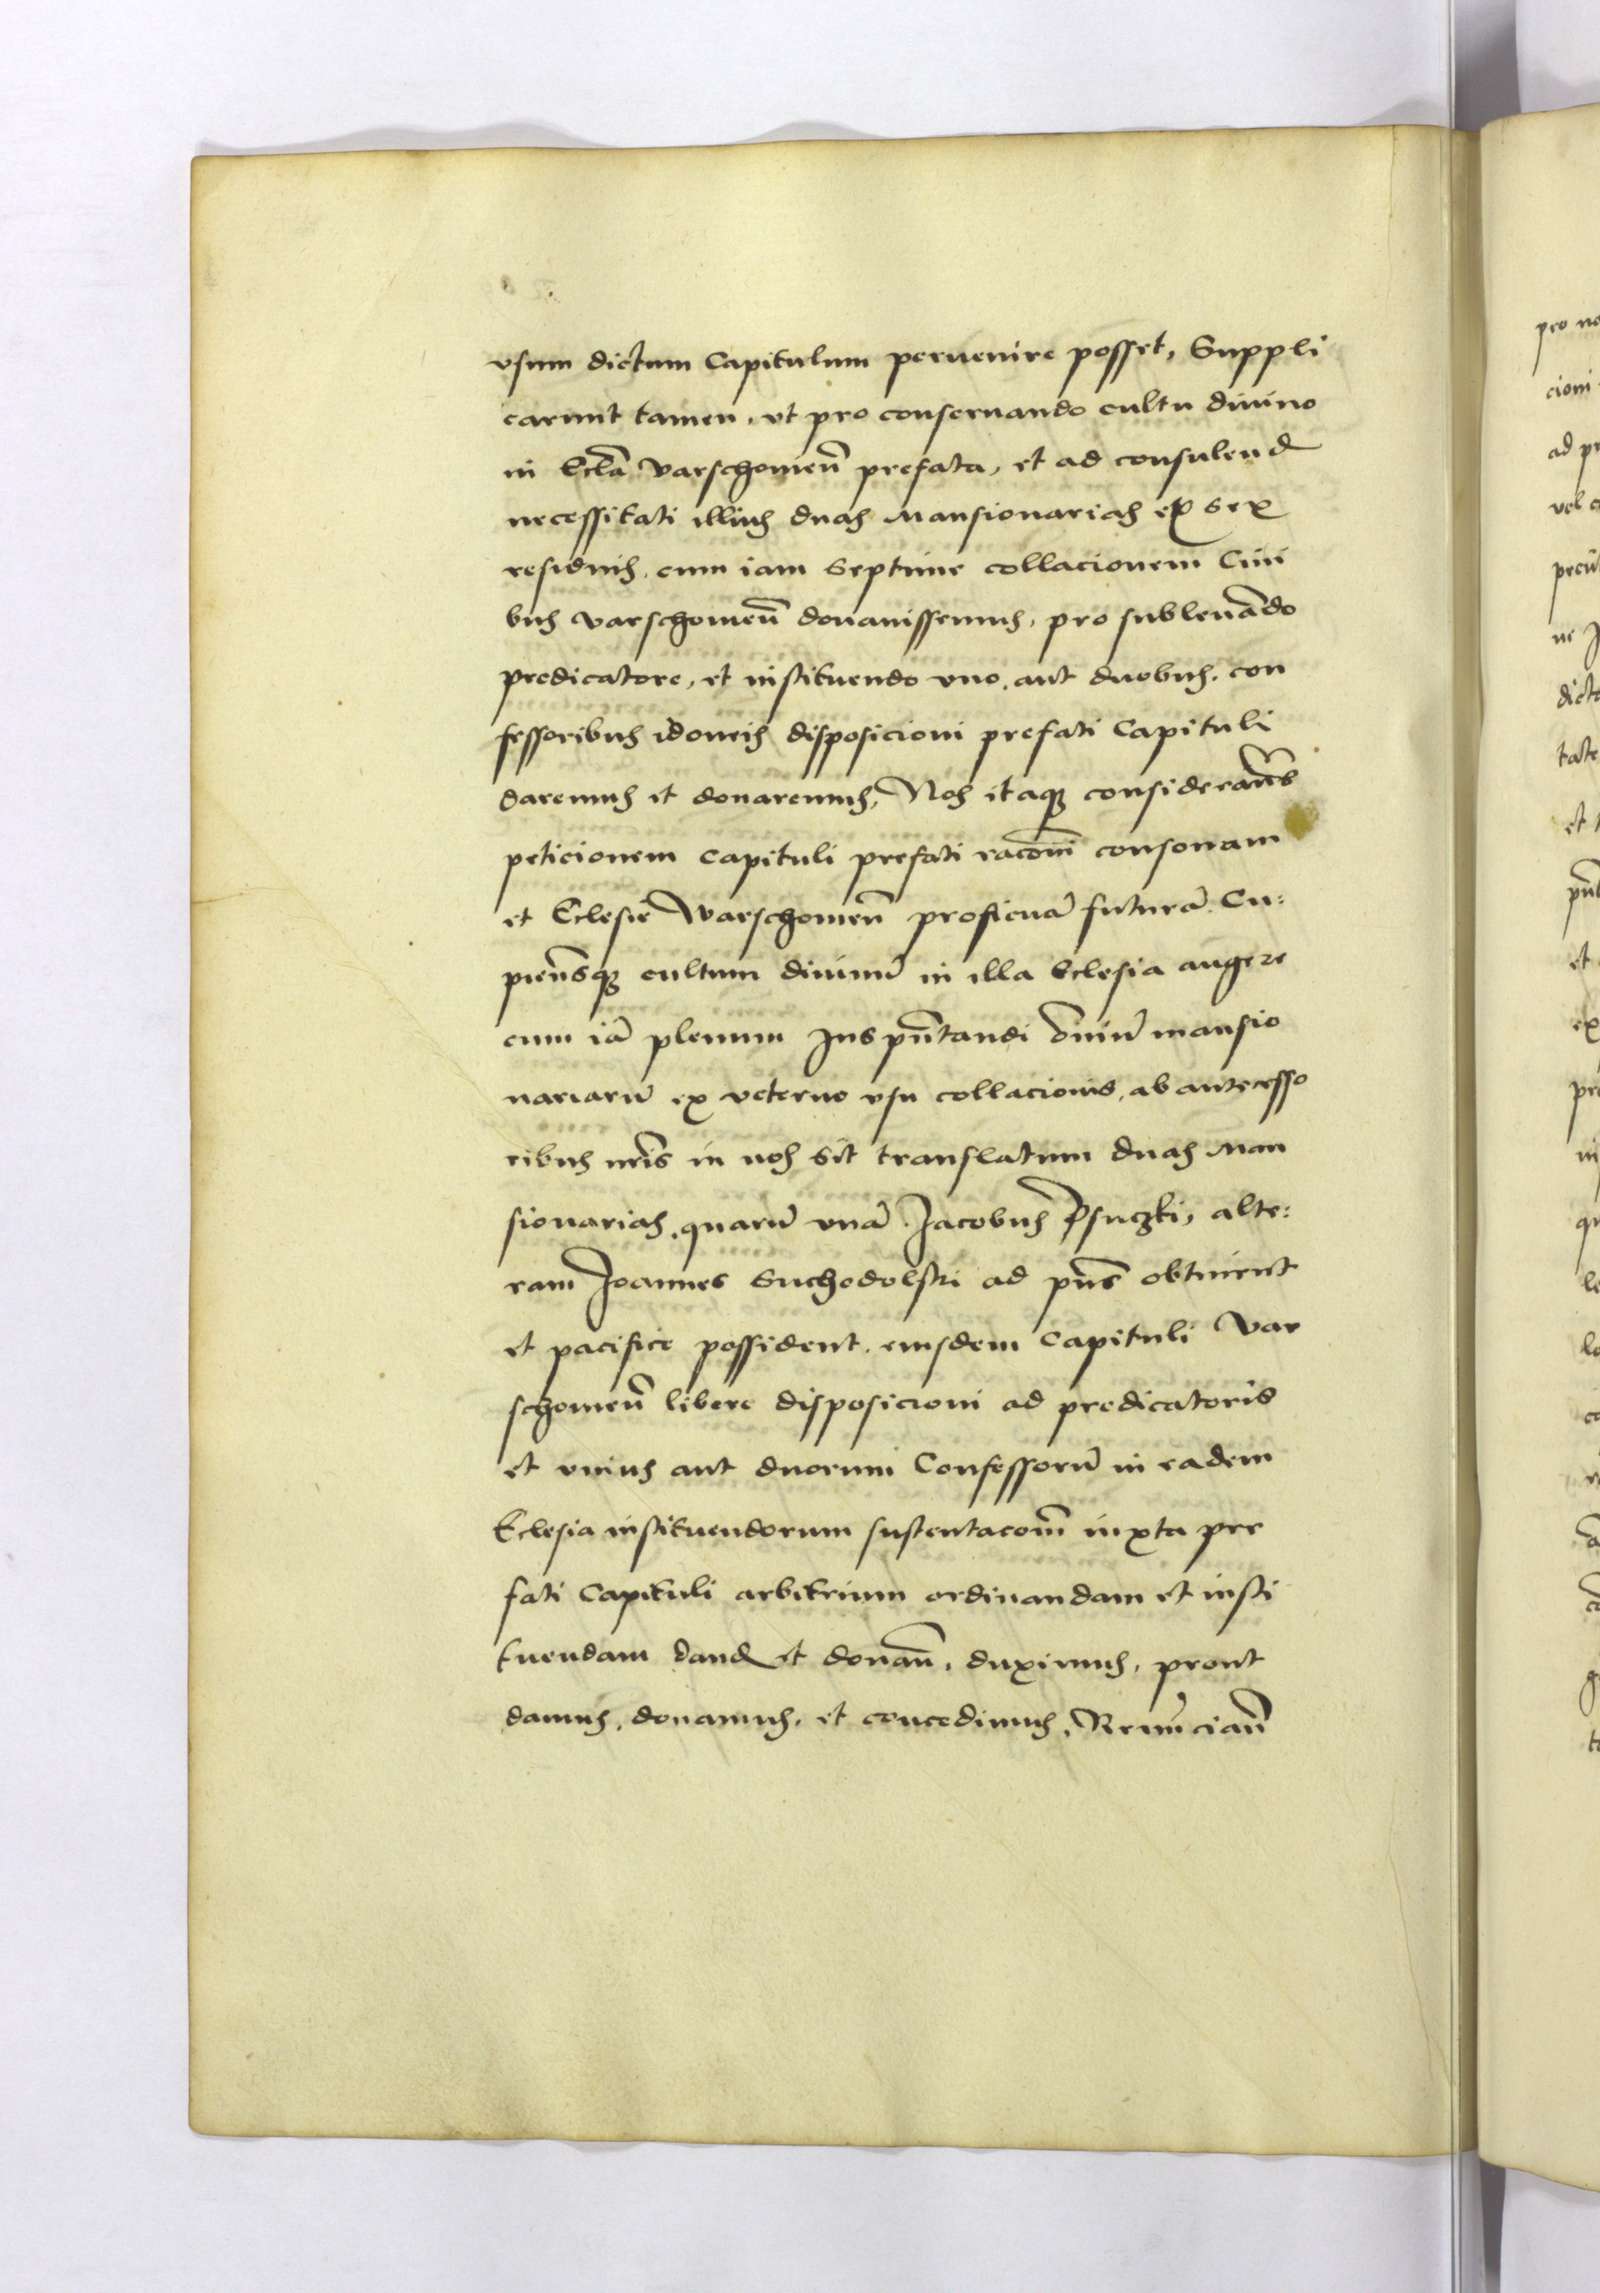 vsum dictum Capitulum peruenire posset, Suppli
carunt tamen, vt pro conseruando cultu diuino
in Eclã Varschouieñ prefata, et ad consulend
necessitati illius duas Mansionarias ex sex
residuis, cum iam Septime collacionem Ciui
bus Varschouieñ donauissemus, pro subleuãdo
predicatore, et instituendo vno, aut duobus, con
fessoribus idoneis disposicioni prefati Capituli
daremus et donaremus, Nos itaqꝫ considerañtes
peticionem Capituli prefati racõni consonam
et Eclesie Warschouieñ proficuã futurã. Cu:
pieñsqꝫ cultum diuinũ in illa Eclesia augere
cum iã plenum Jus pñtandi õmniũ mansio
nariarũ ex veterno vsu collacionis, ab antecesso
ribus nris in nos sit translatum duas Man
sionarias, quarũ vnã Jacobus Psuczki, alte:
ram Joannes Suchodolski ad pñs obtinent
et pacifice possident, eiusdem Capituli Var
schouieñ libere disposicioni ad predicatoris
et vnius aut duorum Confessorũ in eadem
Eclesia instituendorum sustentacõm iuxta pre
fati Capituli arbitrium ordinandam et insti
tuendam dand et donañ, duximus, prout
damus, donamus, et concedimus, Renũciañ
pro no
cioni
ad pr
dicto
tate
et